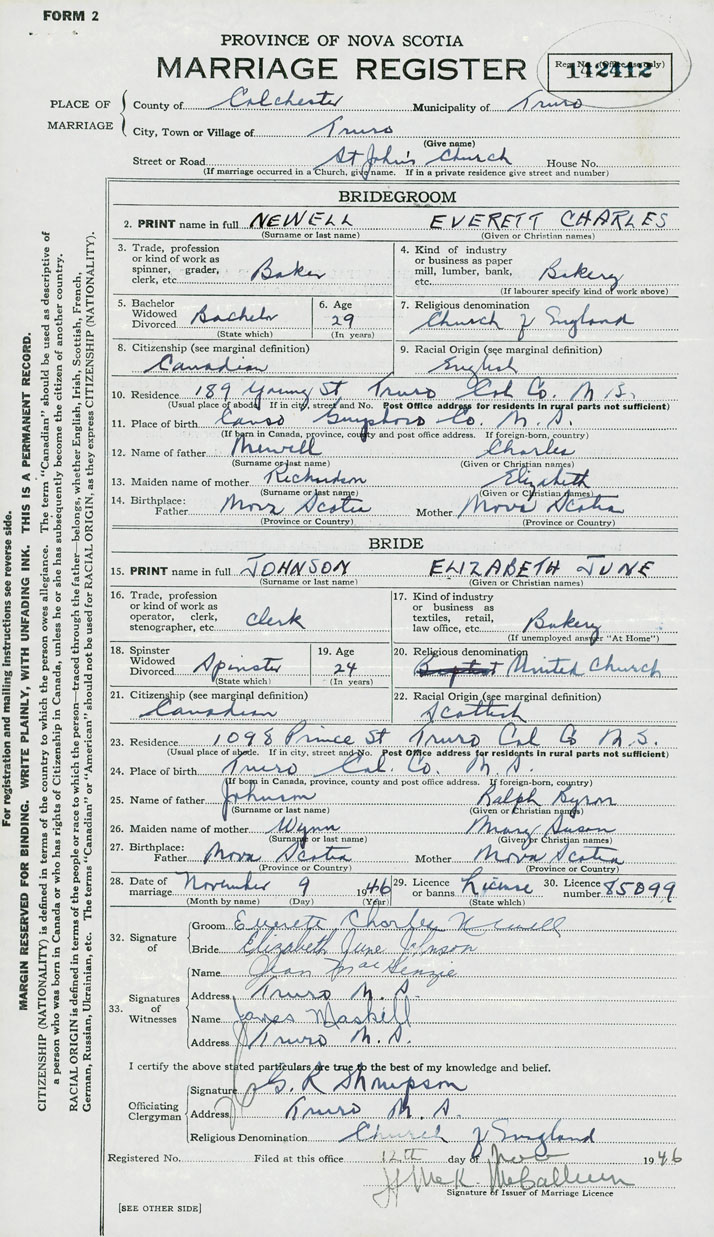 FORM 2
PROVINCE OF NOVA SCOTIA
MARRIAGE REGISTER
Reg. No. (Office use only)
142412
PLACE OF MARRIAGE
County of Colchester Municipality of Truro
City, Town or Village of Truro
(Give name)
Street or Road St John's Church House No.
(If marriage occurred in a Church, give name. If in a private residence give street and number)
BRIDEGROOM
2. PRINT name in full NEWELL EVERETT CHARLES
(Surname or last name) (Given or Christian names)
3. Trade, profession or kind of work as spinner, grader, clerk, etc. Baker
4. Kind of industry or business as paper mill, lumber, bank, etc. Bakery
(If labourer specify kind of work above)
5. Bachelor Widowed Divorced Bachelor
(State which)
6. Age 29
(In years)
7. Religious denomination
Church of England
8. Citizenship (see marginal definition)
Canadian
9. Racial Origin (see marginal definition)
English
10. Residence 189 Young St Truro Col Co. N.S.
(Usual place of abode. If in city, street and No. Post Office address for residents in rural parts not sufficient)
11. Place of birth Canso Guysboro Co. N.S.
(If born in Canada, province, county and post office address. If foreign-born, country)
12. Name of father Newell Charles
(Surname or last name) (Given or Christian names)
13. Maiden name of mother Richardson Elizabeth
(Surname or last name) (Given or Christian names)
14. Birthplace: Father Nova Scotia Mother Nova Scotia
(Province or Country) (Province or Country)
BRIDE
15. PRINT name in full JOHNSON ELIZABETH JUNE
(Surname or last name) (Given or Christian names)
16. Trade, profession or kind of work as operator, clerk, stenographer, etc. Clerk
17. Kind of industry or business as textiles, retail, law office, etc. Bakery
(If unemployed answer "At Home")
18. Spinster Widowed Divorced Spinster
(State which)
19. Age 24
(In years)
20. Religious denomination
Baptist United Church
21. Citizenship (see marginal definition)
Canadian
22. Racial Origin (see marginal definition)
Scottish
23. Residence 109 Prince St Truro Col Co N.S.
(Usual place of abode. If in city, street and No. Post Office address for residents in rural parts not sufficient)
24. Place of birth Truro Col. Co. N.S.
(If born in Canada, province, county and post office address. If foreign-born, country)
25. Name of father Johnson Ralph Byron
(Surname or last name) (Given or Christian names)
26. Maiden name of mother Wynn Mary Susan
(Surname or last name) (Given or Christian names)
27. Birthplace: Father Nova Scotia Mother Nova Scotia
(Province or Country) (Province or Country)
28. Date of marriage November 9 1946
(Month by name) (Day) (Year)
29. Licence or banns License
(State which)
30. Licence number 85099
32. Signature of
Groom Everett Charles Newell
Bride Elizabeth June Johnson
33. Signatures of Witnesses
Name Jean MacKenzie
Address Truro N.S.
Name James Maskell
Address Truro N.S.
I certify the above stated particulars are true to the best of my knowledge and belief.
Officiating Clergyman
Signature G. R Thompson
Address Truro N.S.
Religious Denomination Church of England
Registered No. Filed at this office 12th day of Nov 1946
McCallum
Signature of Issuer of Marriage Licence
[SEE OTHER SIDE]
For registration and mailing instructions see reverse side.
MARGIN RESERVED FOR BINDING. WRITE PLAINLY, WITH UNFADING INK. THIS IS A PERMANENT RECORD.
CITIZENSHIP (NATIONALITY) is defined in terms of the country to which the person owes allegiance. The term "Canadian" should be used as descriptive of
a person who was born in Canada or who has rights of Citizenship in Canada, unless he or she has subsequently become the citizen of another country.
RACIAL ORIGIN is defined in terms of the people or race to which the person—traced through the father—belongs, whether English, Irish, Scottish, French,
German, Russian, Ukrainian, etc. The terms "Canadian" or "American" should not be used for RACIAL ORIGIN, as they express CITIZENSHIP (NATIONALITY).